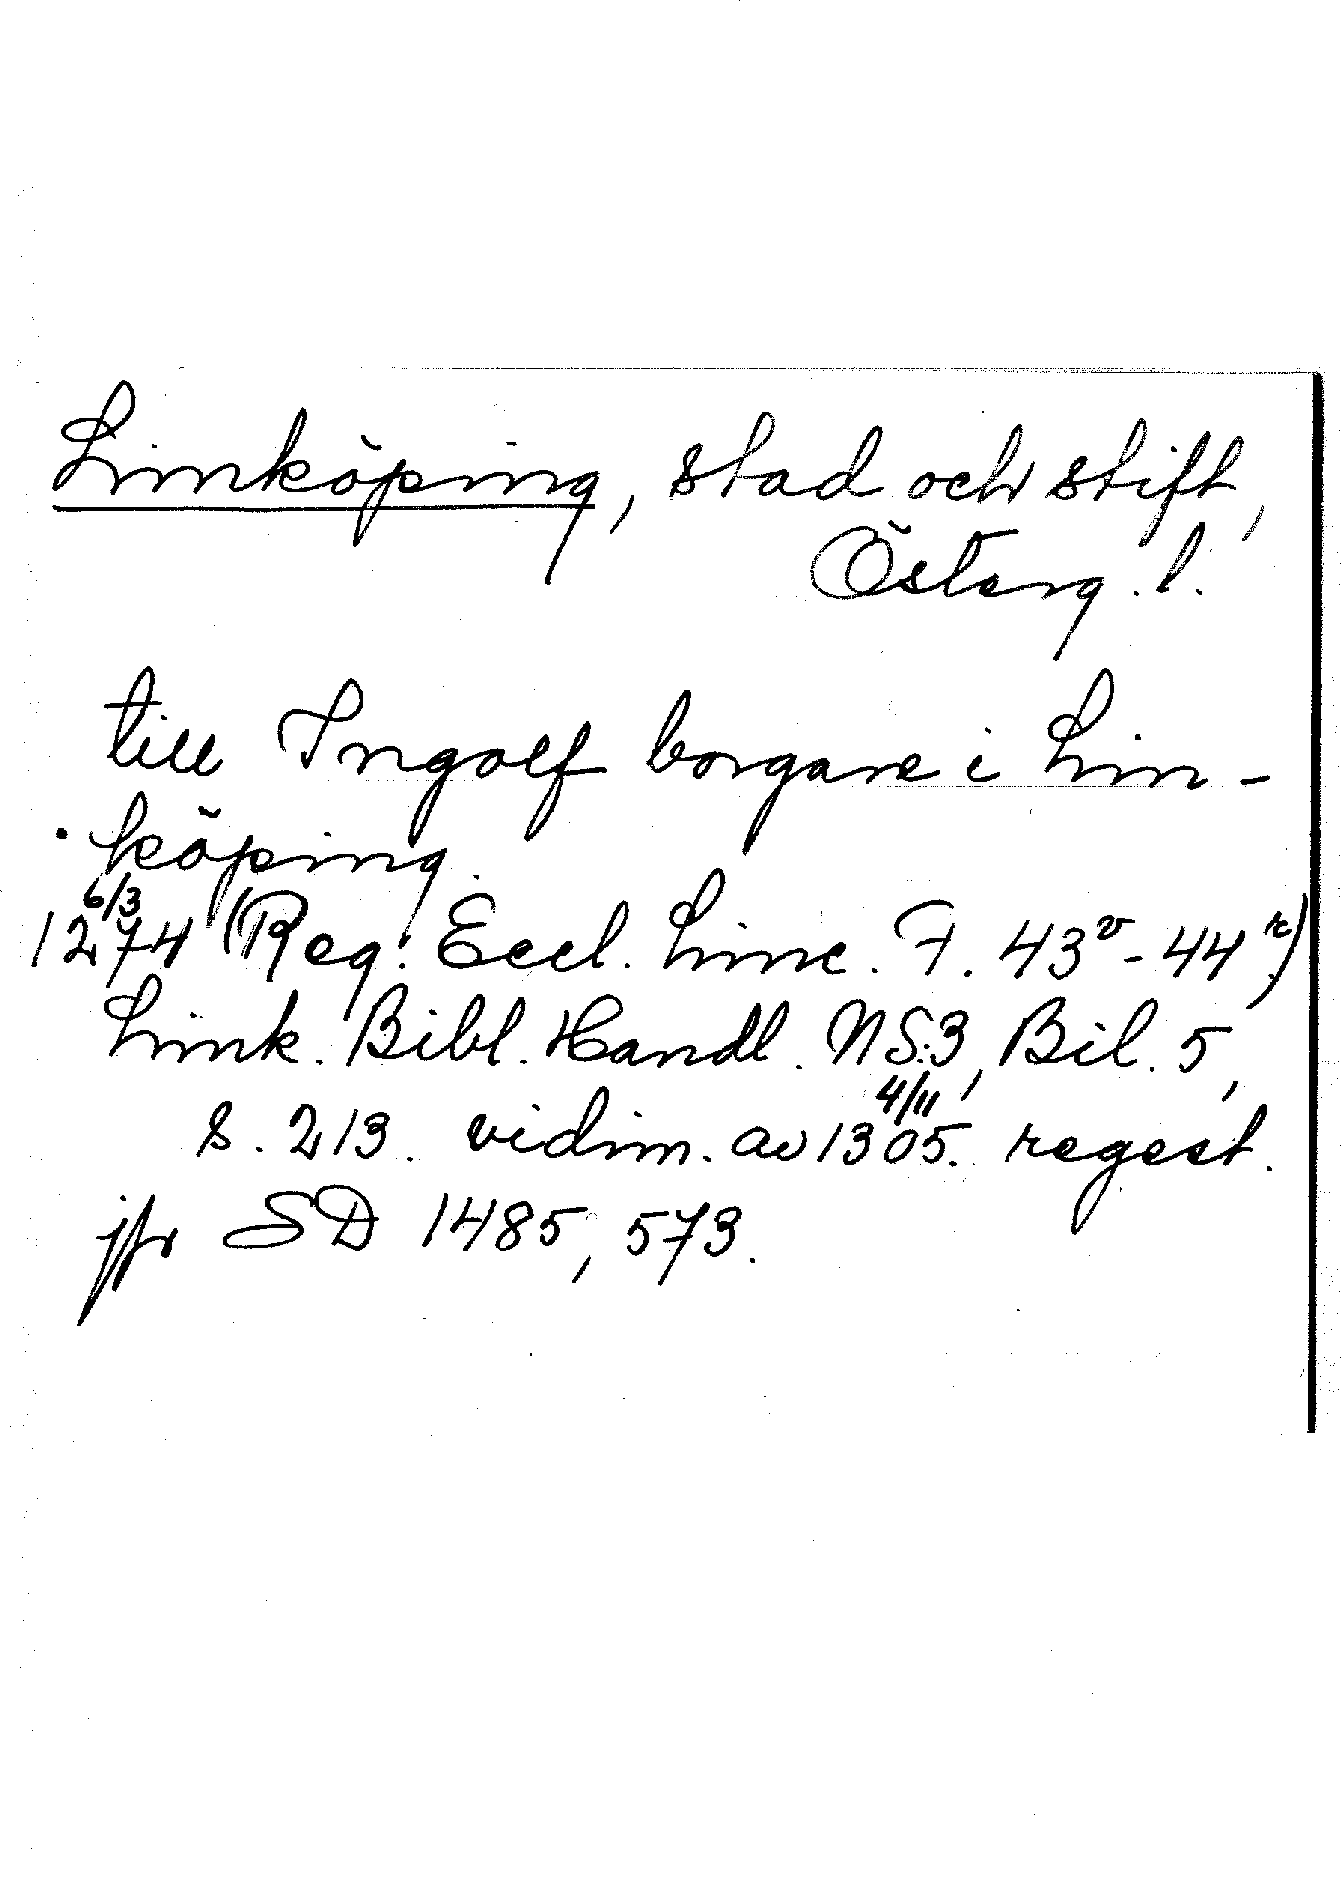 Linköping, stad och stift,
Österg. l.
till Ingolf borgare i Lin-
köping.
6/3
1274 (Reg. Eccl. Linc. F. 43v - 44r)
Link. Bibl. Handl. NS:3, Bil. 5,
4/11
s. 213. vidim. av 1305. regest.
jfr SD 1485, 573.